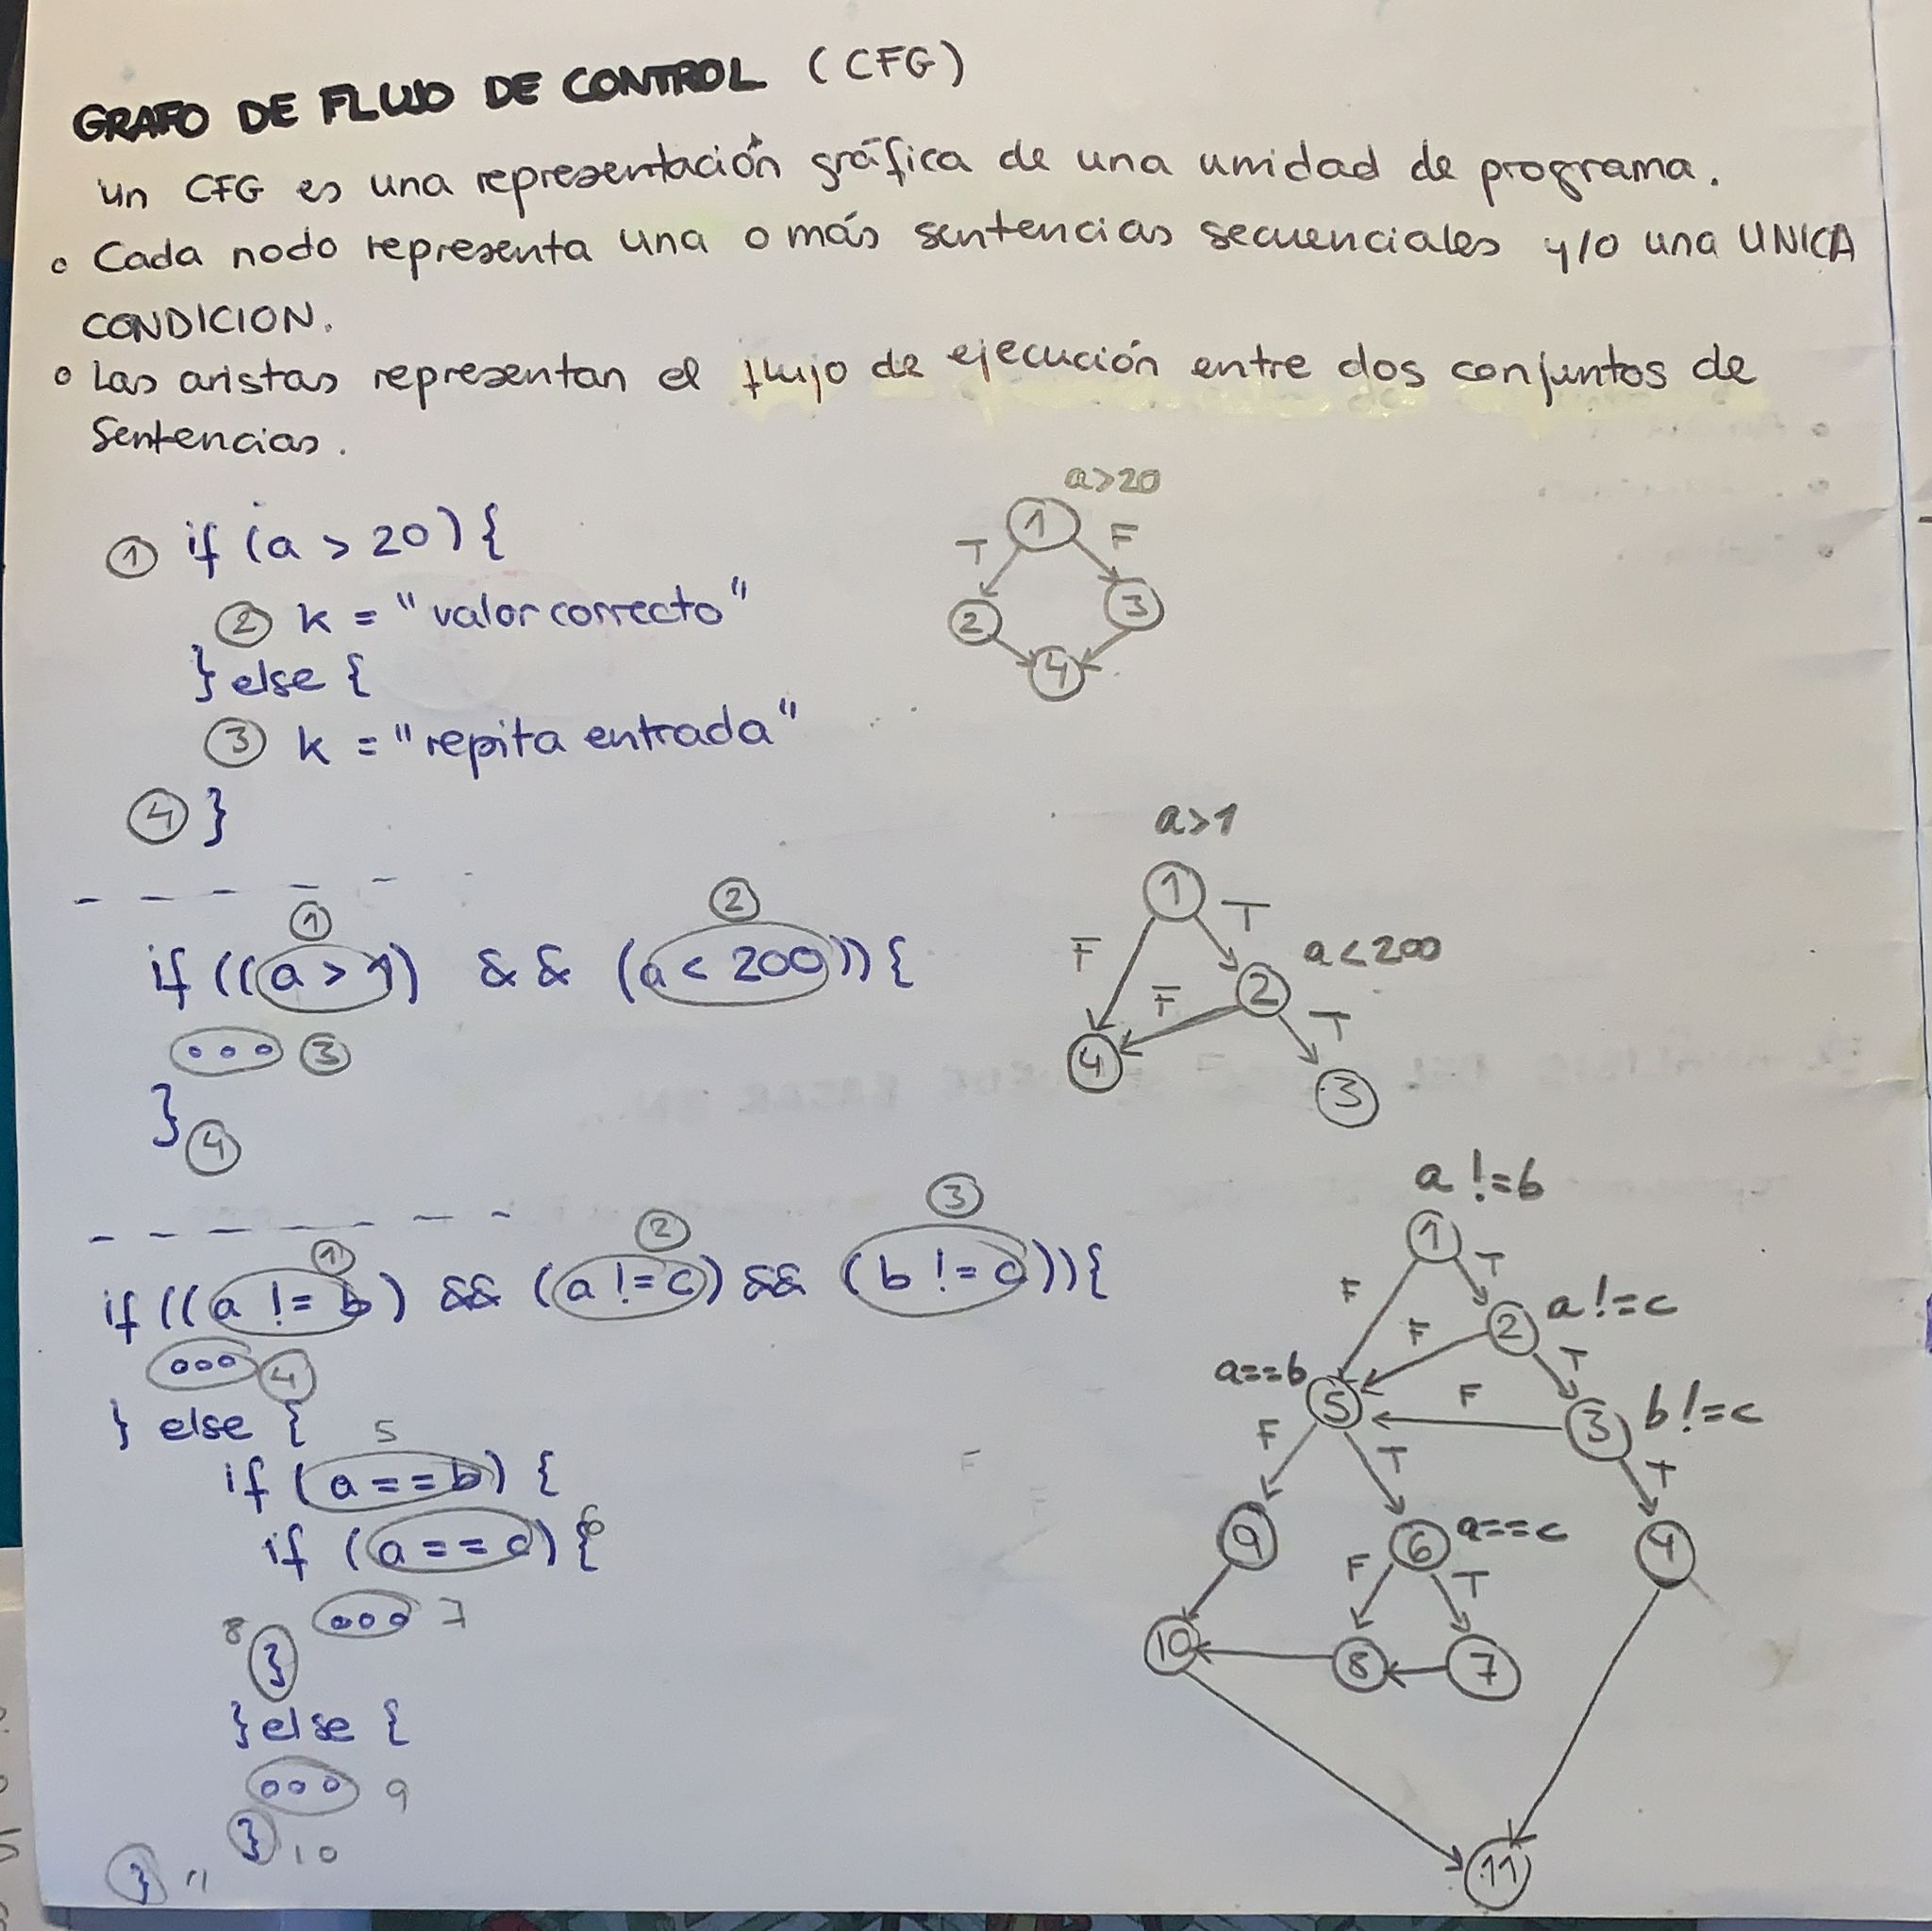 GRAFO DE FLUJO DE CONTROL (CFG)
un CFG es una representación gráfica de una unidad de programa.
o Cada nodo representa una o más sentencias secuenciales y/o una UNICA
CONDICION.
o Las aristas representan el flujo de ejecución entre dos conjuntos de
Sentencias.
① if (a > 20) {
② k = "valor correcto"
} else {
③ k = "repita entrada"
④ }
a>20
1
T F
2 3
4
① ②
if ((a > 1) && (a < 200)) {
ooo ③
} ④
a>1
1
T
F
a<200
2
F
T
4
3
① ② ③
if ((a != b) && (a != c) && (b != c)) {
ooo ④
} else {
5
if (a == b) {
if (a == c) { 6
ooo 7
8 }
} else {
ooo 9
} 10
} 11
a != b
1
F T
2 a != c
F T
a==b 5
F
3 b != c
F T T
9 6 a==c 4
F T
10 8 7
11